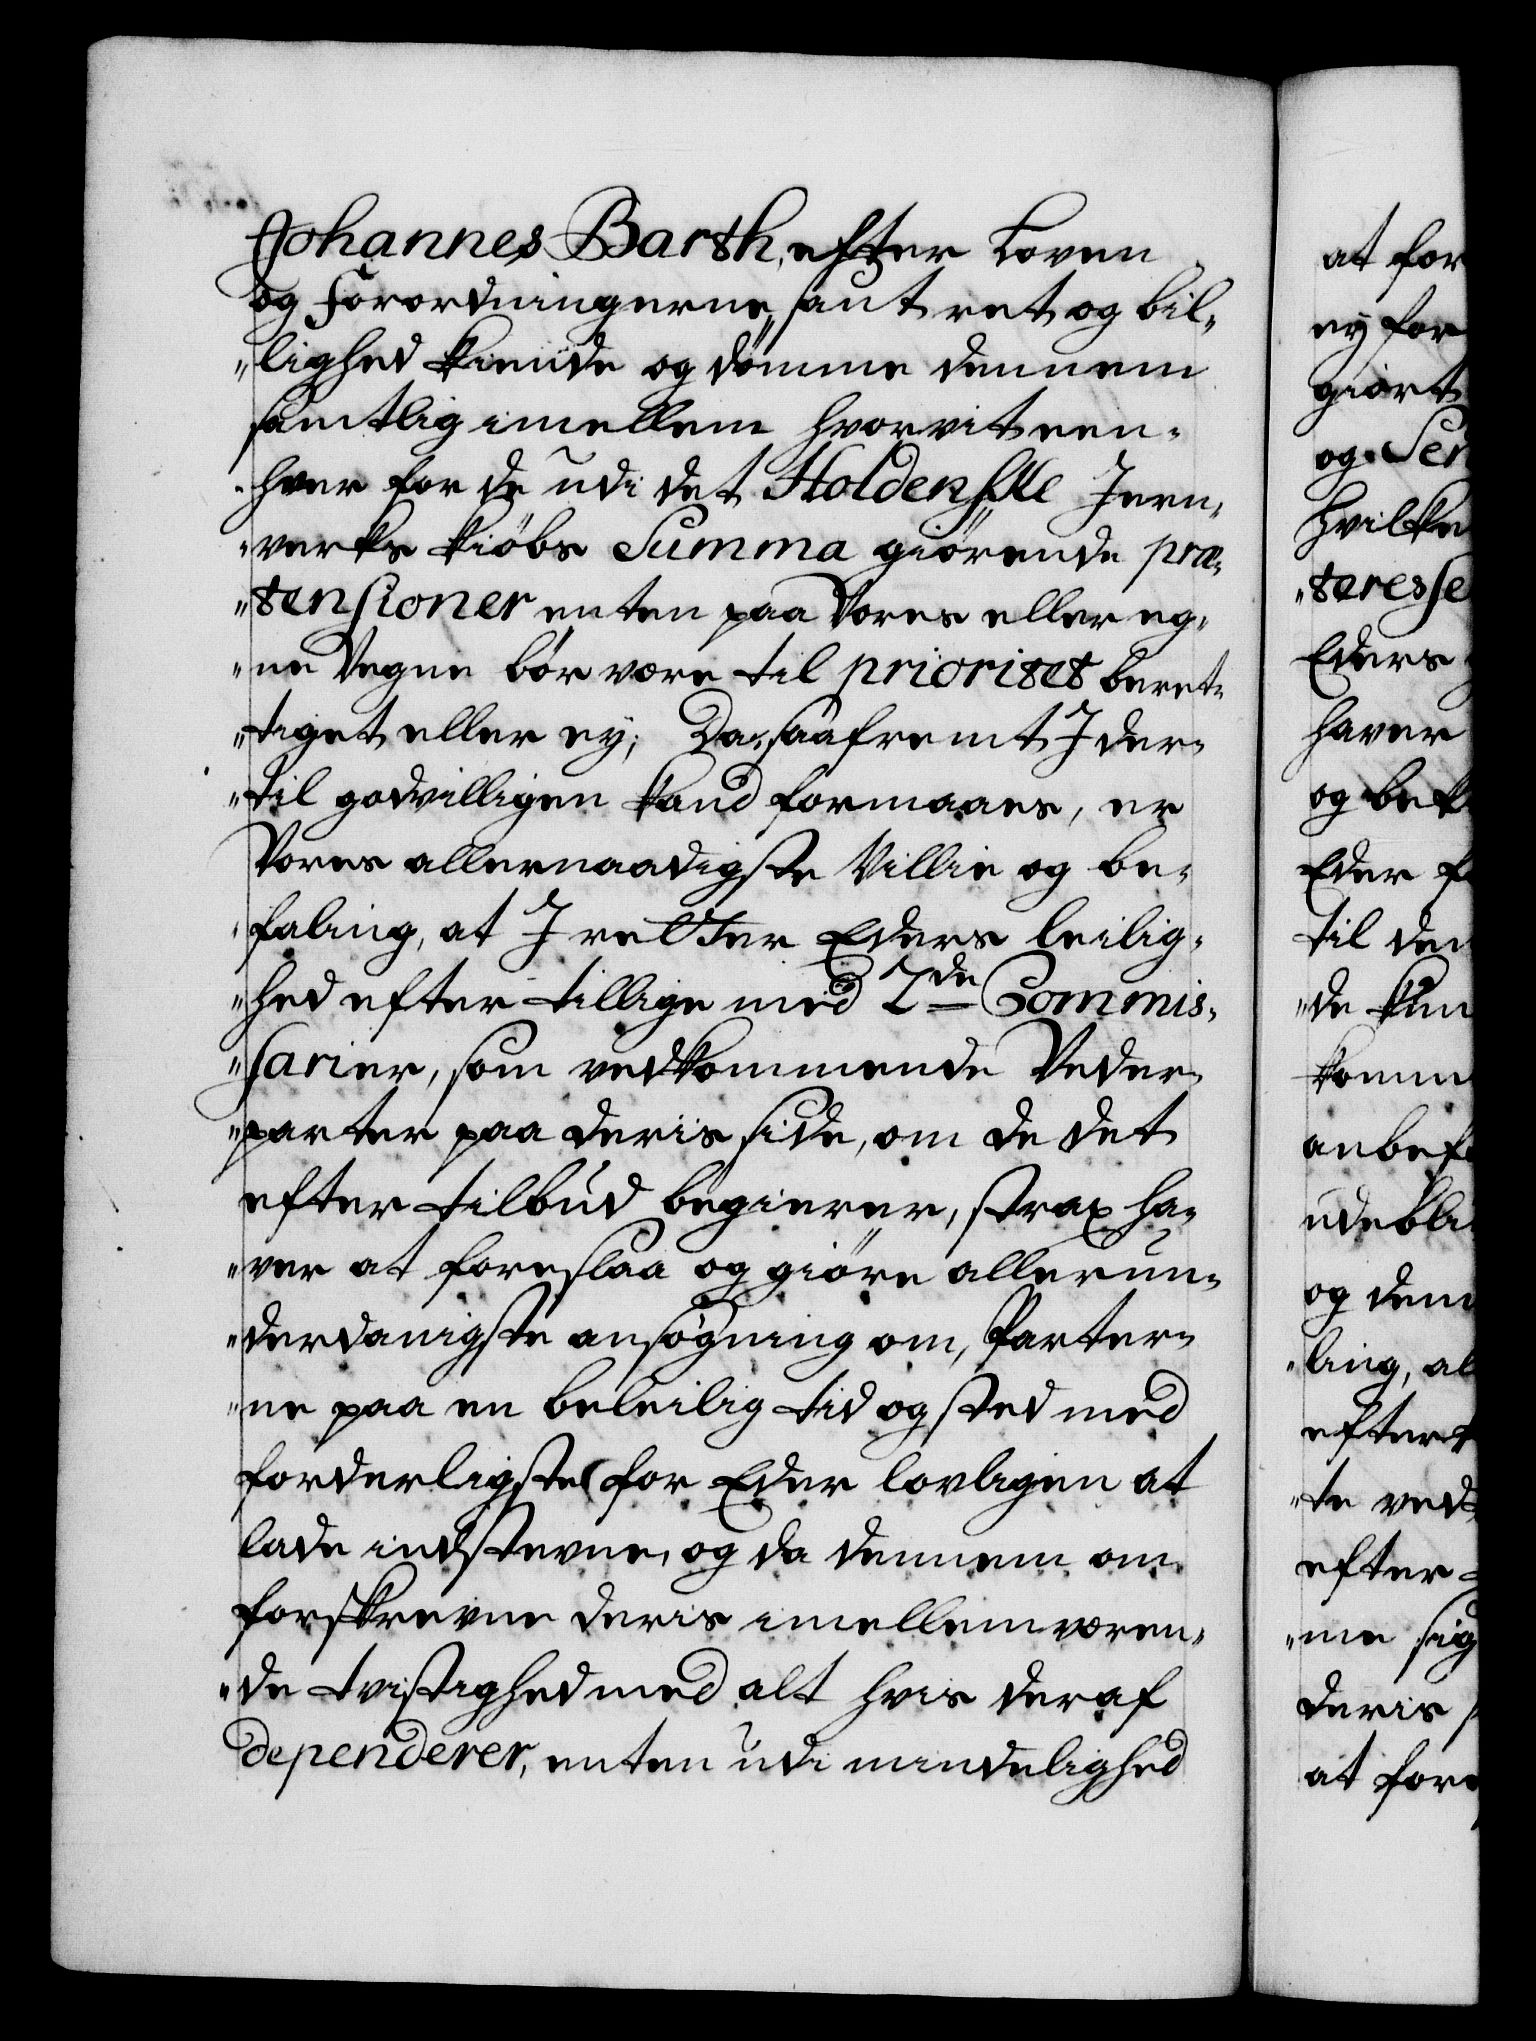 Johannes Barth, efter Loven
og Forordningerne, samt ret og bil„
„lighed kiende og dömme dennem
samtlig imellem hvorvit een„
„hver for de udi det Holdenske Jern„
„verks kiöbs Summa giörende præ„
„tensioner enten paa Vores eller eg„
„ne Vegne bör være til prioritet beret„
„tiget eller ey; Da, saafremt J der„
„til godvilligen kand formaaes, er
Vores allernaadigste Villie og be„
„faling, at J retter Eders leilig„
„hed efter tillige med 2de Commis„
„sarier, som vedkommende Veder„
„parter paa deris side, om de det
efter tilbud begierer, strax ha„
„ver at foreslaa og giöre allerun„
„derdanigste ansögning om, Parter„
„ne paa en beleilig tid og sted med
forderligste for Eder lovligen at
lade indstevne, og da dennem om
forskrevne deris imellem væren„
„de tvistighed med alt hvis deraf
dependerer, enten udi mindelighed
at for
ey for
giört
og Ser
hvilke
„teresse
Eders
haver
og bek
Eder
til den
„de kun
komm
anbef
udebli
og dem
„ling, al
efter
„te ved
efter
„me sig
deris
at fore